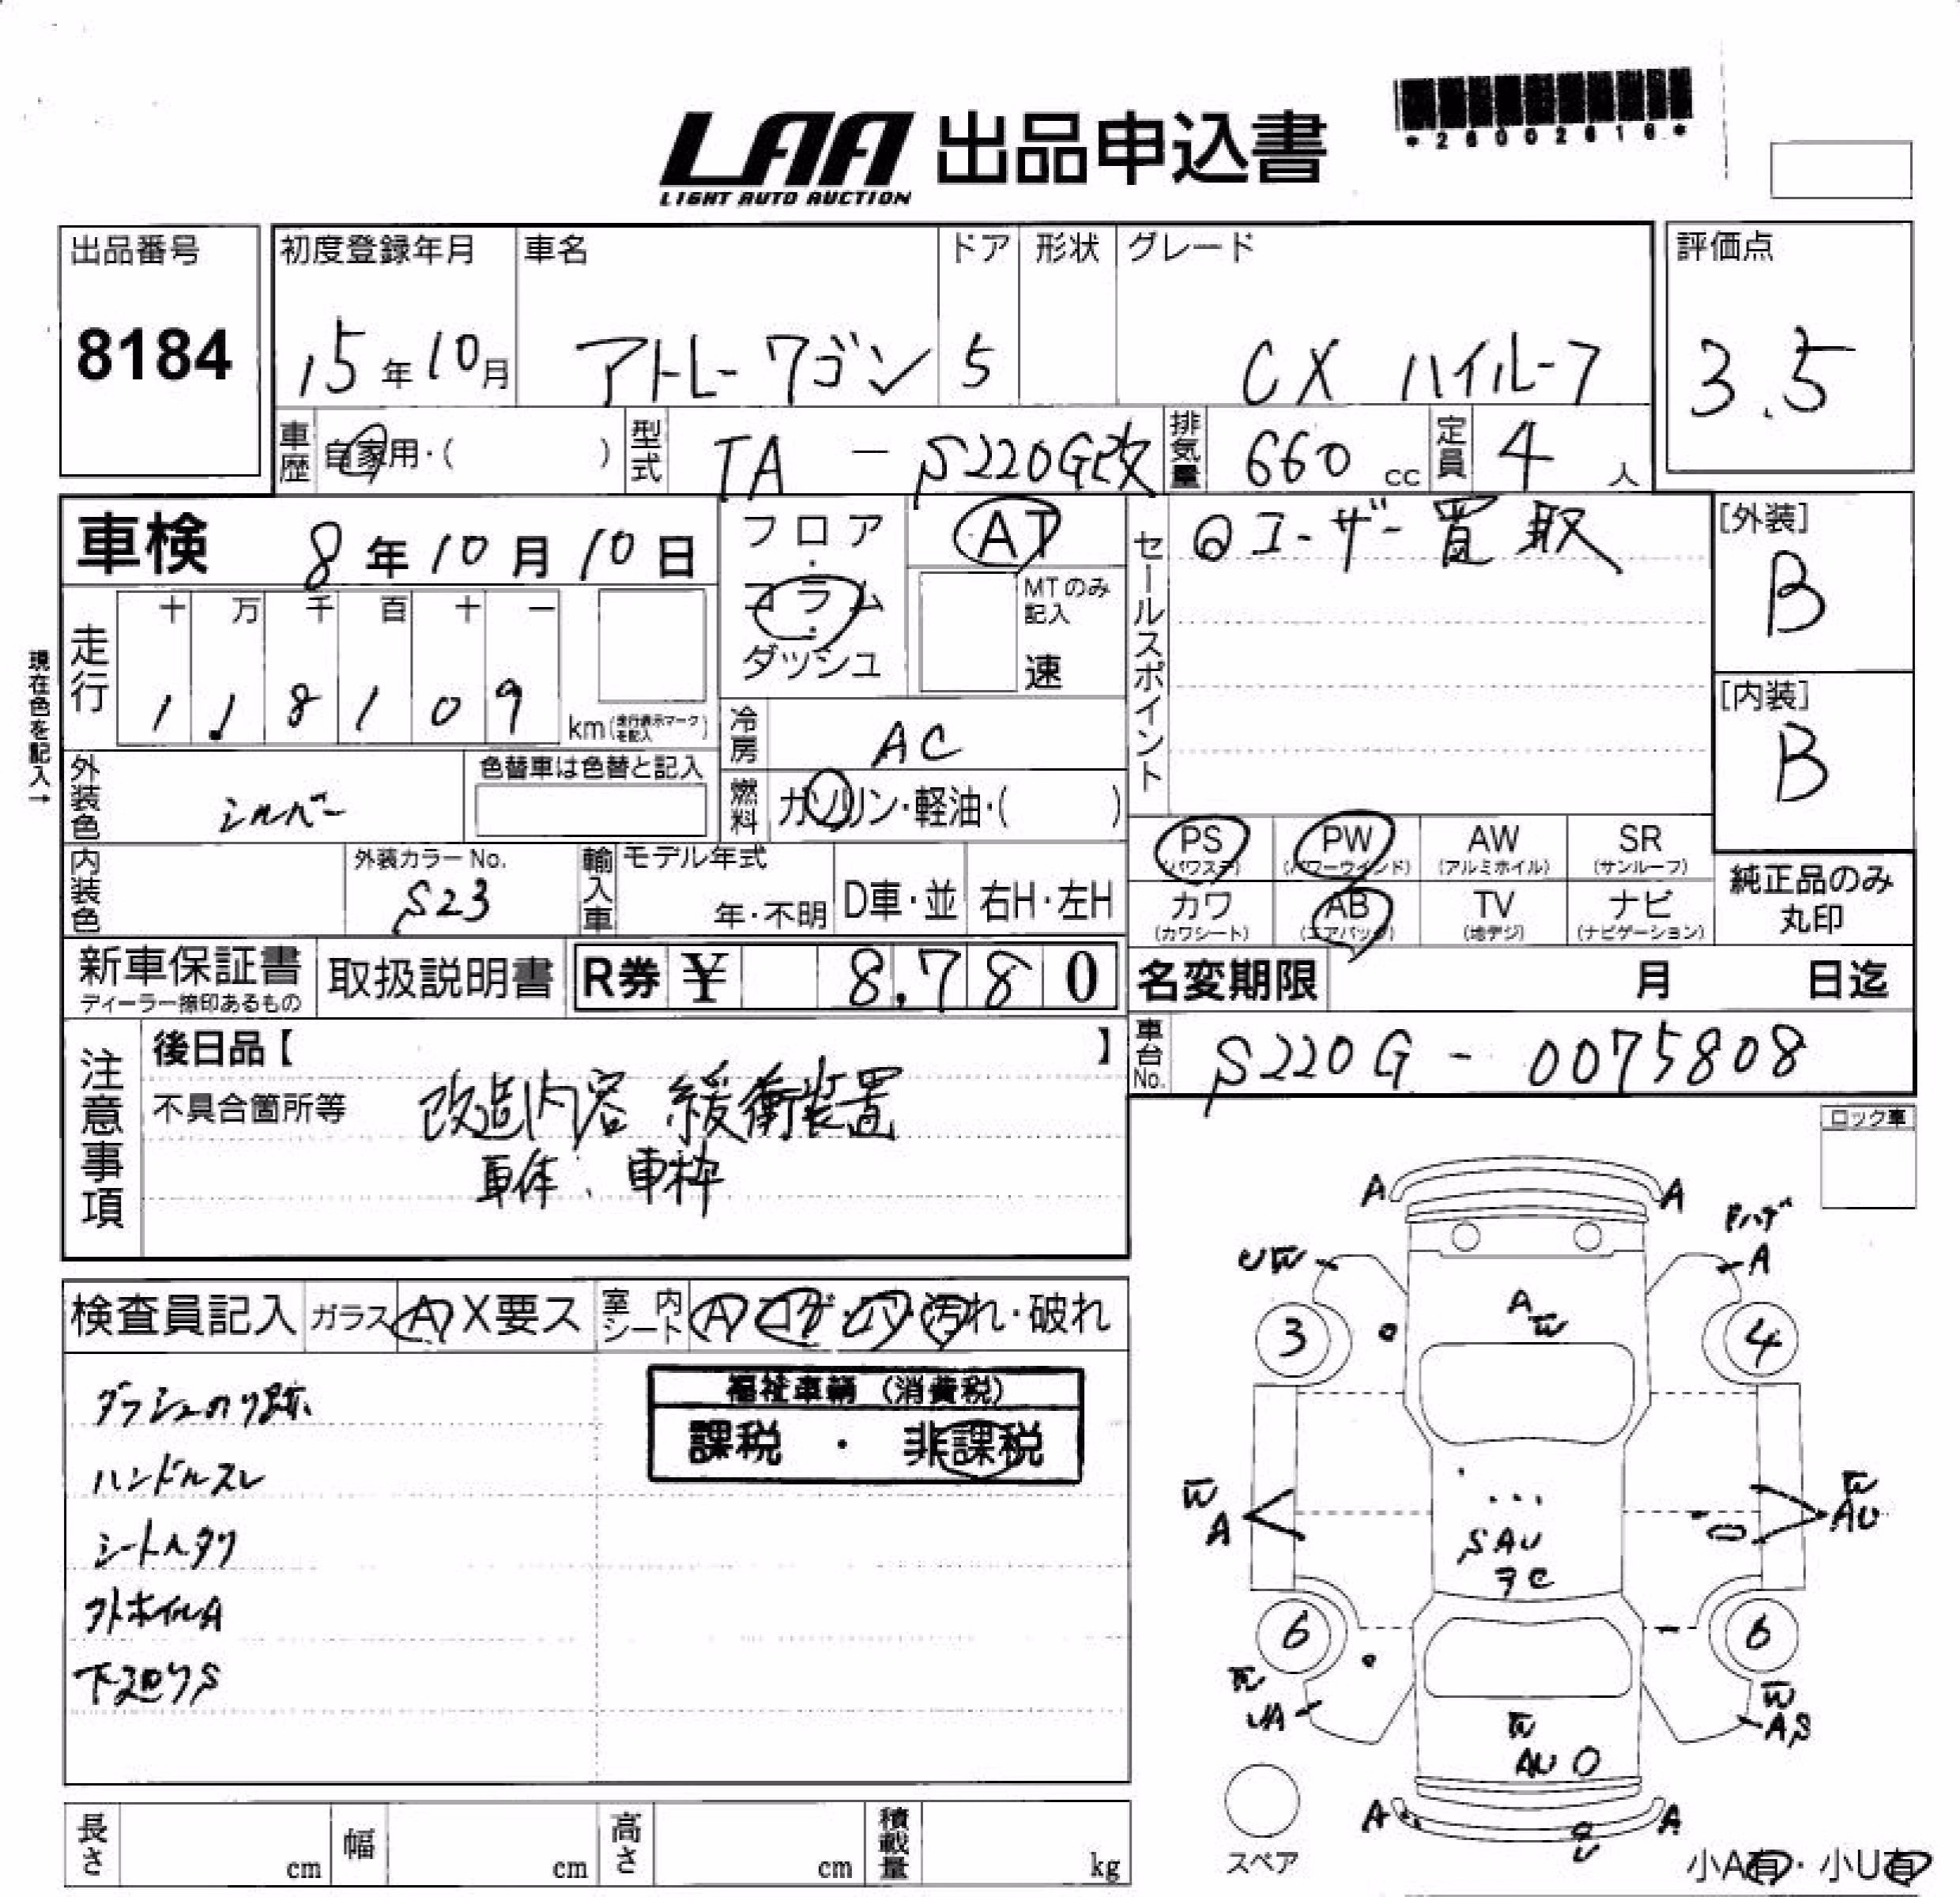 LAA 出品申込書
LIGHT AUTO AUCTION
*26002616*
出品番号
8184
初度登録年月
15年10月
車名
アトレーワゴン
ドア
5
形状
グレード
CX ハイルーフ
評価点
3.5
車歴
自家用・( )
型式
TA - S220G改
排気量
660 cc
定員
4 人
車検
8年10月10日
フロア・コラム・ダッシュ
AT
MTのみ記入
速
セールスポイント
◎ユーザー買取
[外装]
B
[内装]
B
現在色を記入→
走行
十 万 千 百 十 一
1 1. 8 1 0 9
km(走行表示マークを記入)
冷房
AC
外装色
シルバー
色替車は色替と記入
燃料
ガソリン・軽油・( )
内装色
外装カラーNo.
S23
輸入車
モデル年式
年・不明
D車・並
右H・左H
PS
(パワステ)
PW
(パワーウインド)
AW
(アルミホイル)
SR
(サンルーフ)
カワ
(カワシート)
AB
(エアバッグ)
TV
(地デジ)
ナビ
(ナビゲーション)
純正品のみ丸印
新車保証書
ディーラー捺印あるもの
取扱説明書
R券 ¥ 8,780
名変期限
月 日迄
車台No.
S220G - 0075808
注意事項
後日品【 】
不具合箇所等
改造内容 緩衝装置
車体. 車枠
ロック車
検査員記入
ガラス
A X要ス
室内シート
A コゲ・穴・汚れ・破れ
福祉車輌(消費税)
課税 ・ 非課税
ダッシュのり跡
ハンドルスレ
シートヘタリ
外ホイルA
下廻りS
A
A
Pハゲ
A
UW
A
W
3
4
W
A
W
AU
SAU
6
6
W
UA
W
AS
W
AU
A
A
スペア
小A有・小U有
長さ
cm
幅
cm
高さ
cm
積載量
kg